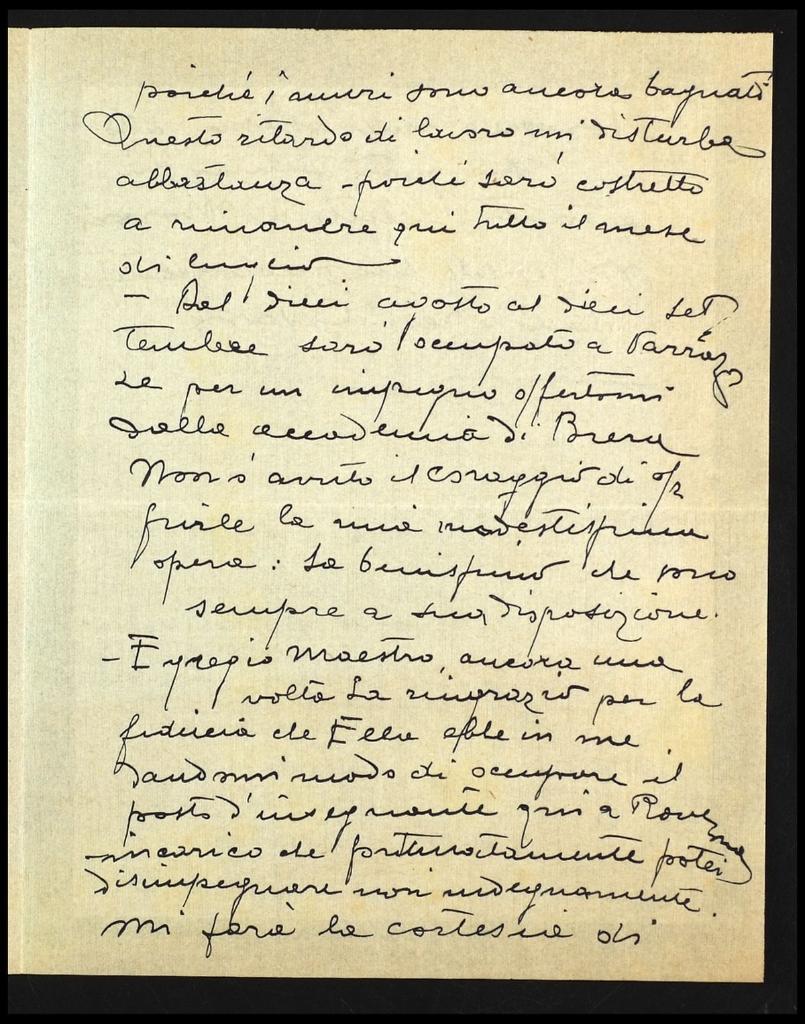 poiché i muri sono ancora bagnati
Questo ritardo di lavoro mi disturba
abbastanza - poiché sarò costretto
a rimanere qui tutto il mese
di luglio
- Dal dieci agosto al dieci set
tembre sarò occupato a
per un impegno offertomi
dalla accademia di Brera
Non ò avuto il coraggio di of
frirle la mia modestissima
opera: Sa benissimo che sono
sempre a sua disposizione.
- Egregio Maestro, ancora una
volta La ringrazio per la
fiducia che Ella ebbe in me
dandomi modo di occupare il
posto d'insegnante qui a Ravenna
- incarico che fortunatamente potei
disimpegnare non indegnamente.
Mi farà la cortesia di